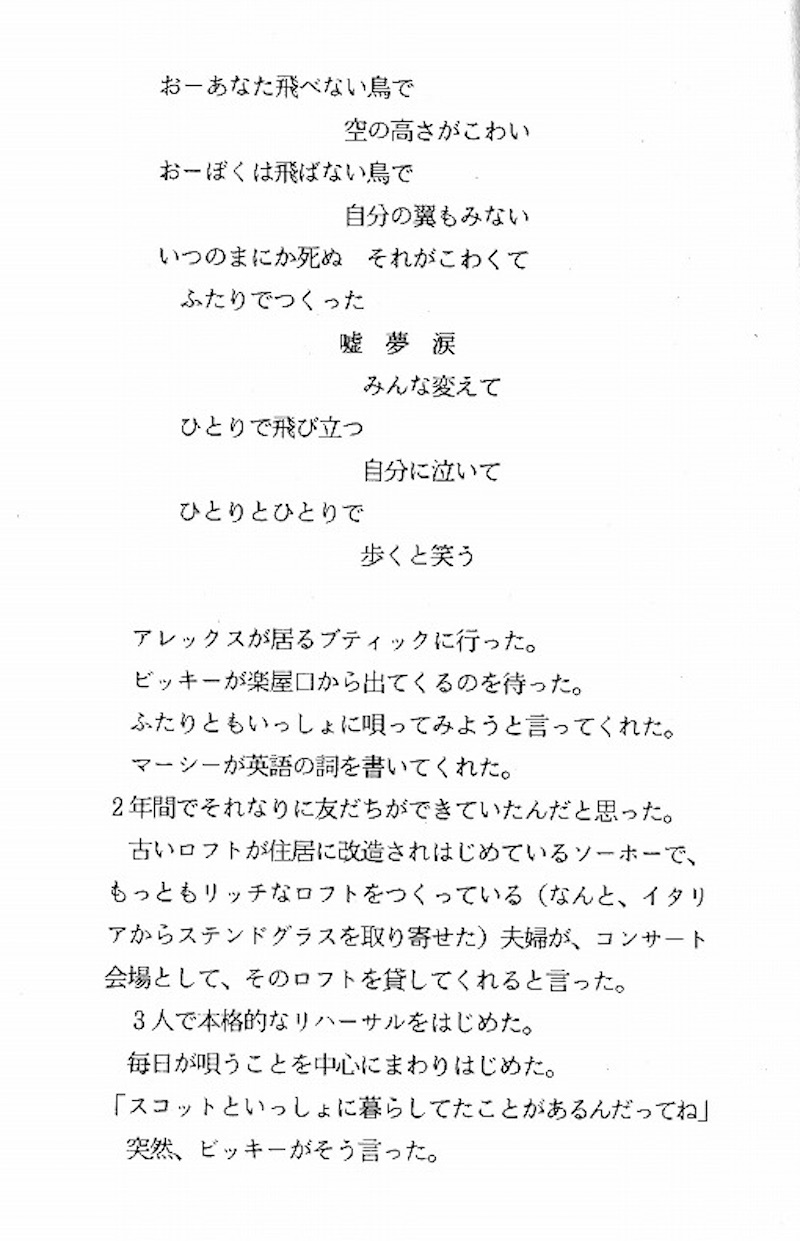 おーあなた飛べない鳥で
空の高さがこわい
おーぼくは飛ばない鳥で
自分の翼もみない
いつのまにか死ぬ　それがこわくて
ふたりでつくった
嘘　夢　涙
みんな変えて
ひとりで飛び立つ
自分に泣いて
ひとりとひとりで
歩くと笑う
アレックスが居るブティックに行った。
ビッキーが楽屋口から出てくるのを待った。
ふたりともいっしょに唄ってみようと言ってくれた。
マーシーが英語の詞を書いてくれた。
2年間でそれなりに友だちができていたんだと思った。
古いロフトが住居に改造されはじめているソーホーで、
もっともリッチなロフトをつくっている（なんと、イタリ
アからステンドグラスを取り寄せた）夫婦が、コンサート
会場として、そのロフトを貸してくれると言った。
3人で本格的なリハーサルをはじめた。
毎日が唄うことを中心にまわりはじめた。
「スコットといっしょに暮らしてたことがあるんだってね」
突然、ビッキーがそう言った。